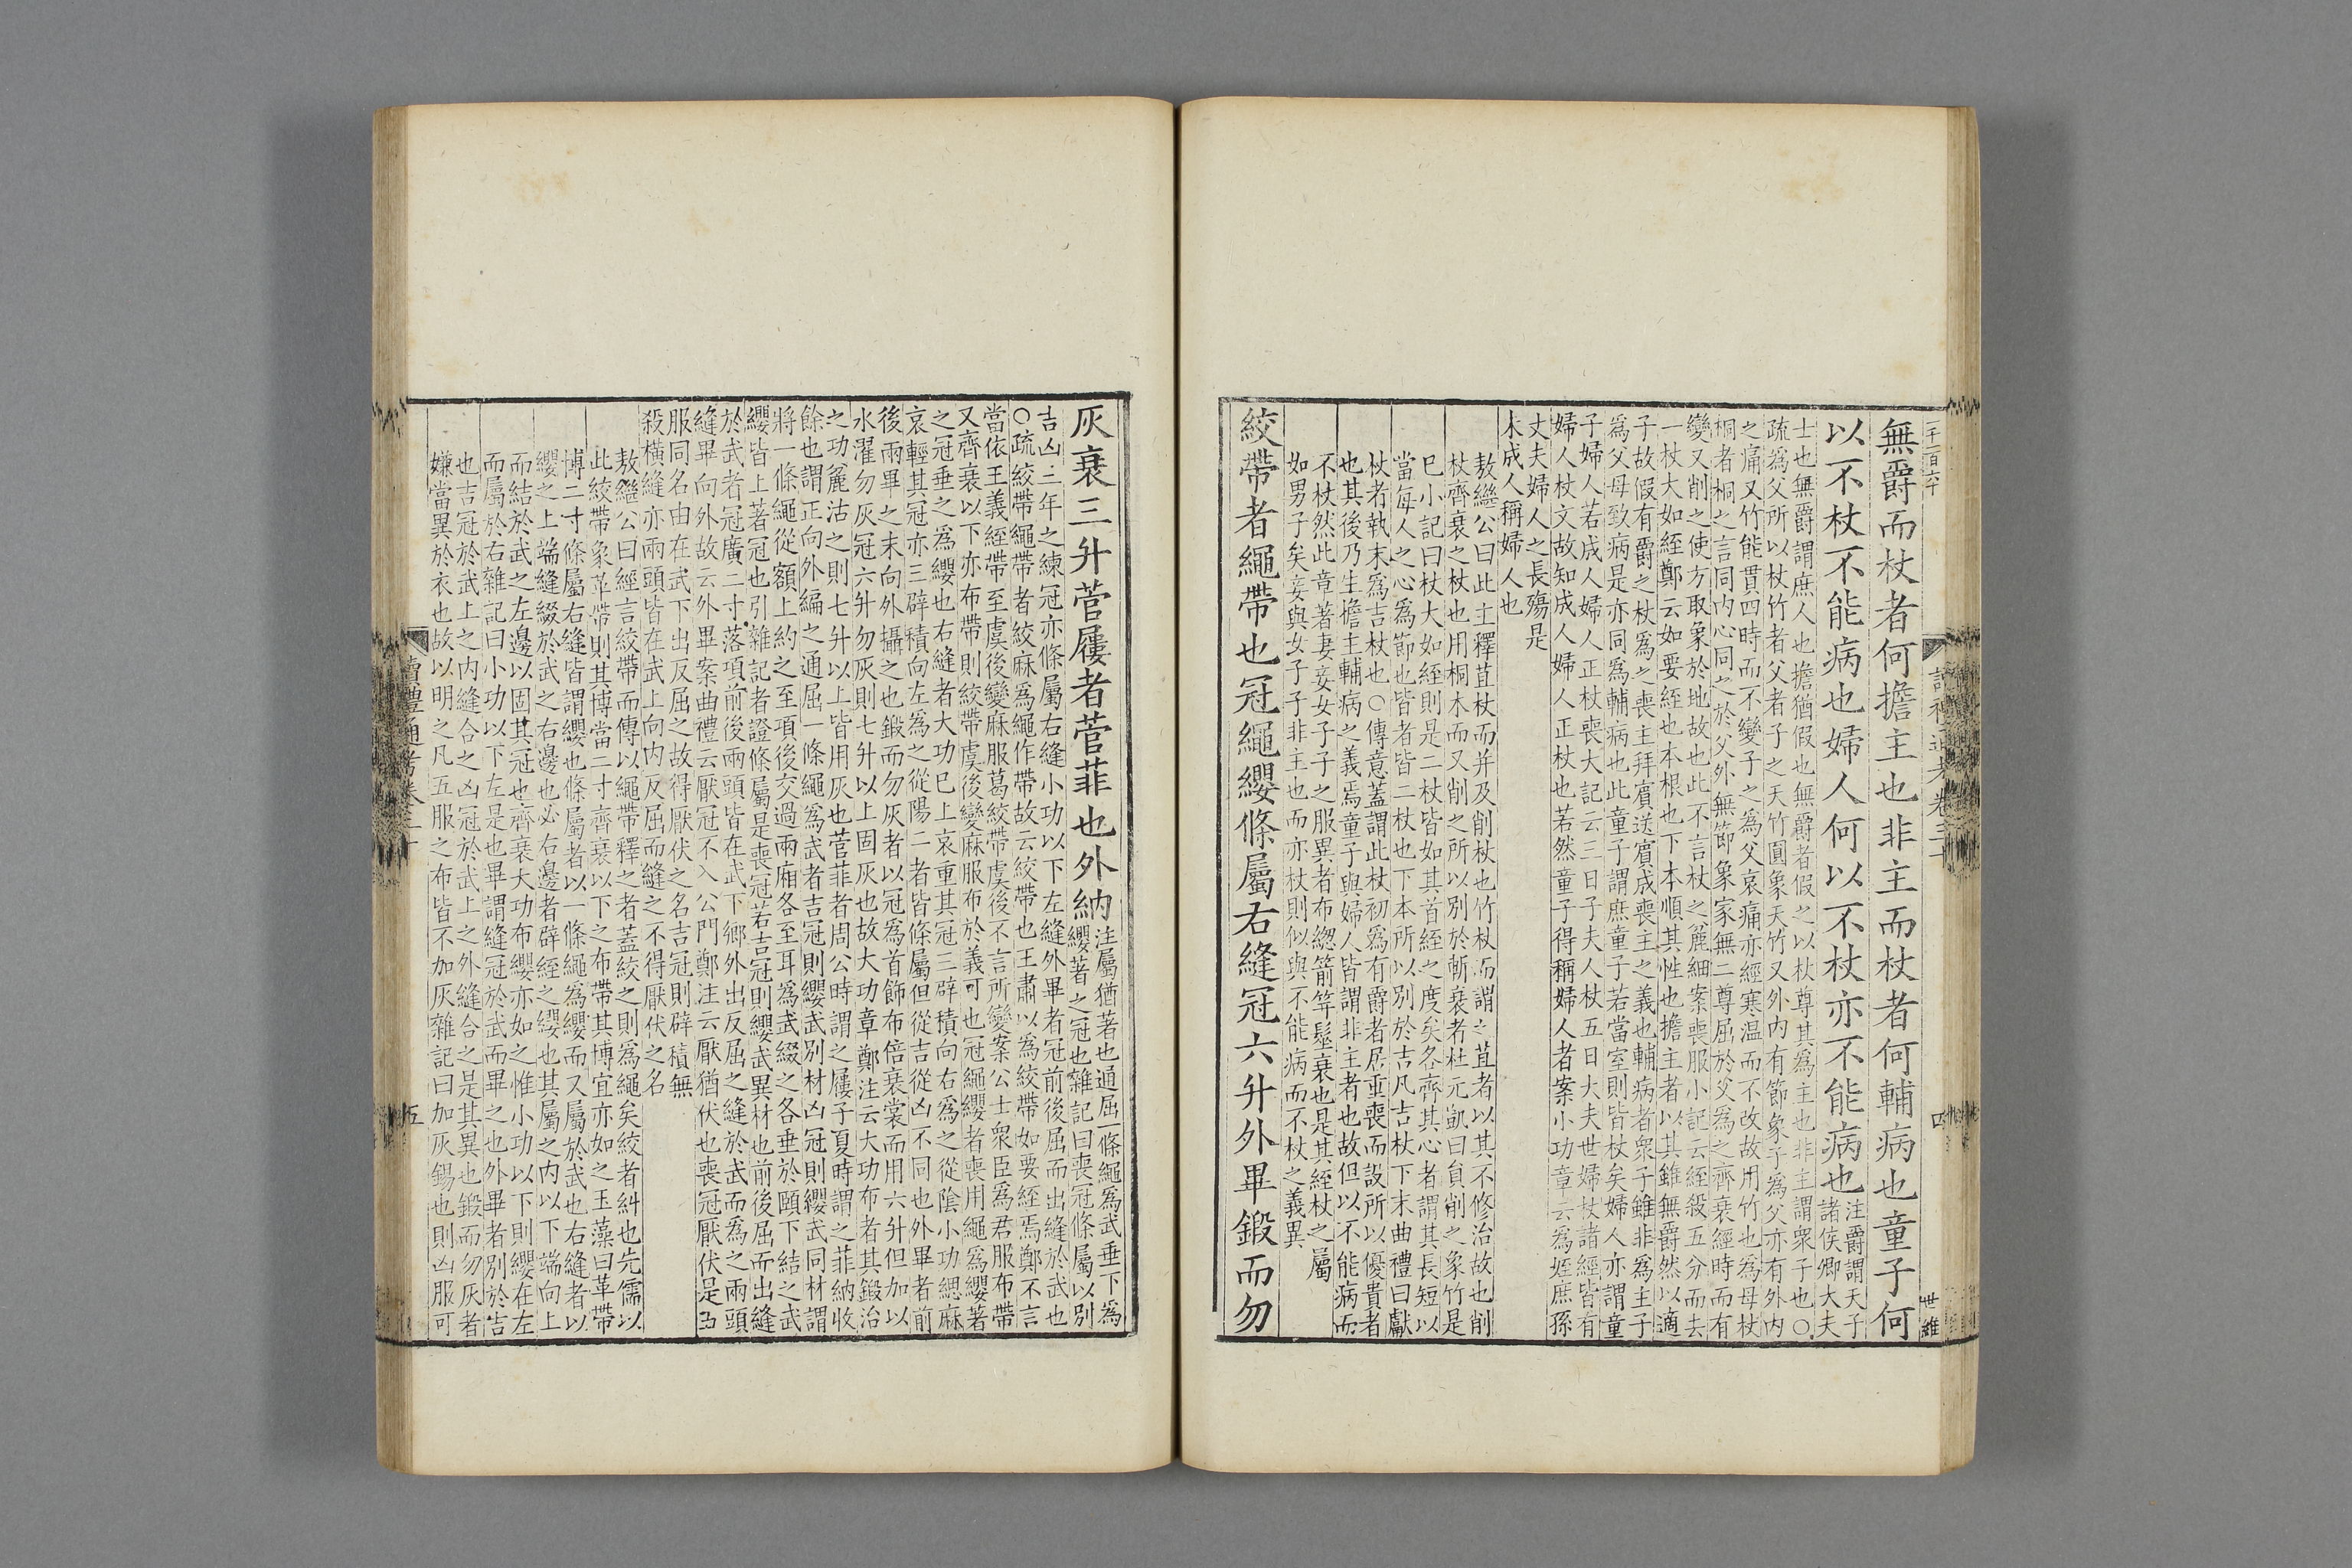 二千二百六十
讀禮通考卷三十
四
世維
無爵而杖者何擔主也非主而杖者何輔病也童子何
以不杖不能病也婦人何以不杖亦不能病也注爵謂天子
諸侯卿大夫
士也無爵謂庶人也擔猶假也無爵者假之以杖尊其為主也非主謂衆子也○
疏為父所以杖竹者父者子之天竹圓象天竹又外內有節象子為父亦有外內
之痛又竹能貫四時而不變子之為父哀痛亦經寒温而不改故用竹也為母杖
桐者桐之言同內心同之於父外無節象家無二尊屈於父為之齊衰經時而有
變又削之使方取象於地故也此不言杖之麄細案喪服小記云絰殺五分而去
一杖大如絰鄭云如要絰也本根也下本順其性也擔主者以其雖無爵然以適
子故假有爵之杖為之喪主拜賓送賓成喪主之義也輔病者衆子雖非為主子
為父母致病是亦同為輔病也此童子謂庶童子若當室則皆杖矣婦人亦謂童
子婦人若成人婦人正杖喪大記云三日子夫人杖五日大夫世婦杖諸經皆有
婦人杖文故知成人婦人正杖也若然童子得稱婦人者案小功章云為姪庶孫
丈夫婦人之長殤是
未成人稱婦人也
敖繼公曰此主釋苴杖而并及削杖也竹杖而謂之苴者以其不修治故也削
杖齊衰之杖也用桐木而又削之所以別於斬衰者杜元凱曰員削之象竹是
巳小記曰杖大如絰則是二杖皆如其首絰之度矣各齊其心者謂其長短以
當每人之心為節也皆者皆二杖也下本所以別於吉凡吉杖下末曲禮曰獻
杖者執末為吉杖也○傳意蓋謂此杖初為有爵者居重喪而設所以優貴者
也其後乃生擔主輔病之義焉童子與婦人皆謂非主者也故但以不能病而
不杖然此章著妻妾女子子之服異者布總箭笄髽衰也是其絰杖之屬
如男子矣妾與女子子非主也而亦杖則似與不能病而不杖之義異
絞帶者繩帶也冠繩纓條屬右縫冠六升外畢鍛而勿
灰衰三升菅屨者菅菲也外納注屬猶著也通屈一條繩為武垂下為
纓著之冠也雜記曰喪冠條屬以別
吉凶三年之練冠亦條屬右縫小功以下左縫外畢者冠前後屈而出縫於武也
○疏絞帶繩帶者絞麻為繩作帶故云絞帶也王肅以為絞帶如要絰焉鄭不言
當依王義絰帶至虞後變麻服葛絞帶虞後不言所變案公士衆臣為君服布帶
又齊衰以下亦布帶則絞帶虞後變麻服布於義可也冠繩纓者喪用繩為纓著
之冠垂之為纓也右縫者大功巳上哀重其冠三辟積向右為之從陰小功緦麻
哀輕其冠亦三辟積向左為之從陽二者皆條屬但從吉從凶不同也外畢者前
後兩畢之末向外攝之也鍛而勿灰者以冠為首飾布倍衰裳而用六升但加以
水濯勿灰冠六升勿灰則七升以上固灰也故大功章鄭注云大功布者其鍛治
之功麄沽之則七升以上皆用灰也菅菲者周公時謂之屨子夏時謂之菲納收
餘也謂正向外編之通屈一條繩為武者吉冠則纓武別材凶冠則纓武同材謂
將一條繩從額上約之至項後交過兩廂各至耳為武綴之各垂於頤下結之武
纓皆上著冠也引雜記者證條屬是喪冠若吉冠則纓武異材也前後屈而出縫
於武者冠廣二寸落項前後兩頭皆在武下鄉外出反屈之縫於武而為之兩頭
縫畢向外故云外畢案曲禮云厭冠不入公門鄭注云厭猶伏也喪冠厭伏是五
服同名由在武下出反屈之故得厭伏之名吉冠則辟積無
殺橫縫亦兩頭皆在武上向內反屈而縫之不得厭伏之名
敖繼公曰經言絞帶而傳以繩帶釋之者蓋絞之則為繩矣絞者糾也先儒以
此絞帶象革帶則其博當二寸齊衰以下之布帶其博宜亦如之玉藻曰革帶
博二寸條屬右縫皆謂纓也條屬者以一條繩為纓而又屬於武也右縫者以
纓之上端縫綴於武之右邊也必右邊者辟絰之纓也其屬之內以下端向上
而結於武之左邊以固其冠也齊衰大功布纓亦如之惟小功以下則纓在左
而屬於右雜記曰小功以下左是也畢謂縫冠於武而畢之也外畢者別於吉
也吉冠於武上之內縫合之凶冠於武上之外縫合之是其異也鍛而勿灰者
嫌當異於衣也故以明之凡五服之布皆不加灰雜記曰加灰錫也則凶服可
讀禮通考卷三十
五